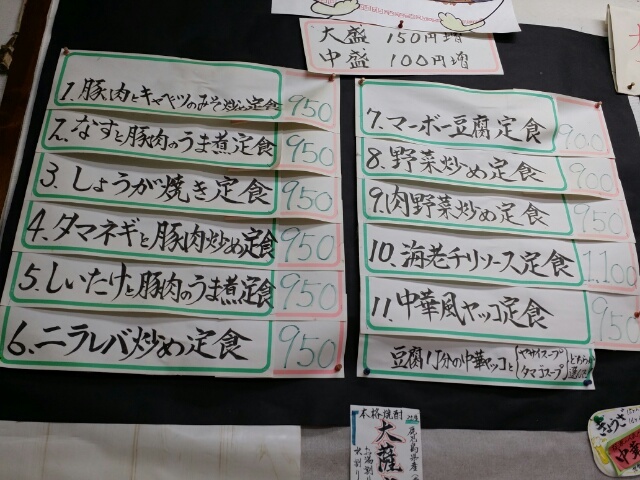 大盛 150円増
中盛 100円増
1. 豚肉とキャベツのみそ炒め定食 950
2. なすと豚肉のうま煮定食 950
3. しょうが焼き定食 950
4. タマネギと豚肉炒め定食 950
5. しいたけと豚肉のうま煮定食 950
6. ニラレバ炒め定食 950
7. マーボー豆腐定食 900
8. 野菜炒め定食 900
9. 肉野菜炒め定食 950
10. 海老チリソース定食 1,100
11. 中華風ヤッコ定食 950
豆腐1丁分の中華ヤッコと
ヤサイスープ
タマゴスープ
本格焼酎
大薩
鹿児島県産
お湯割り
水割り
ぎょうざ